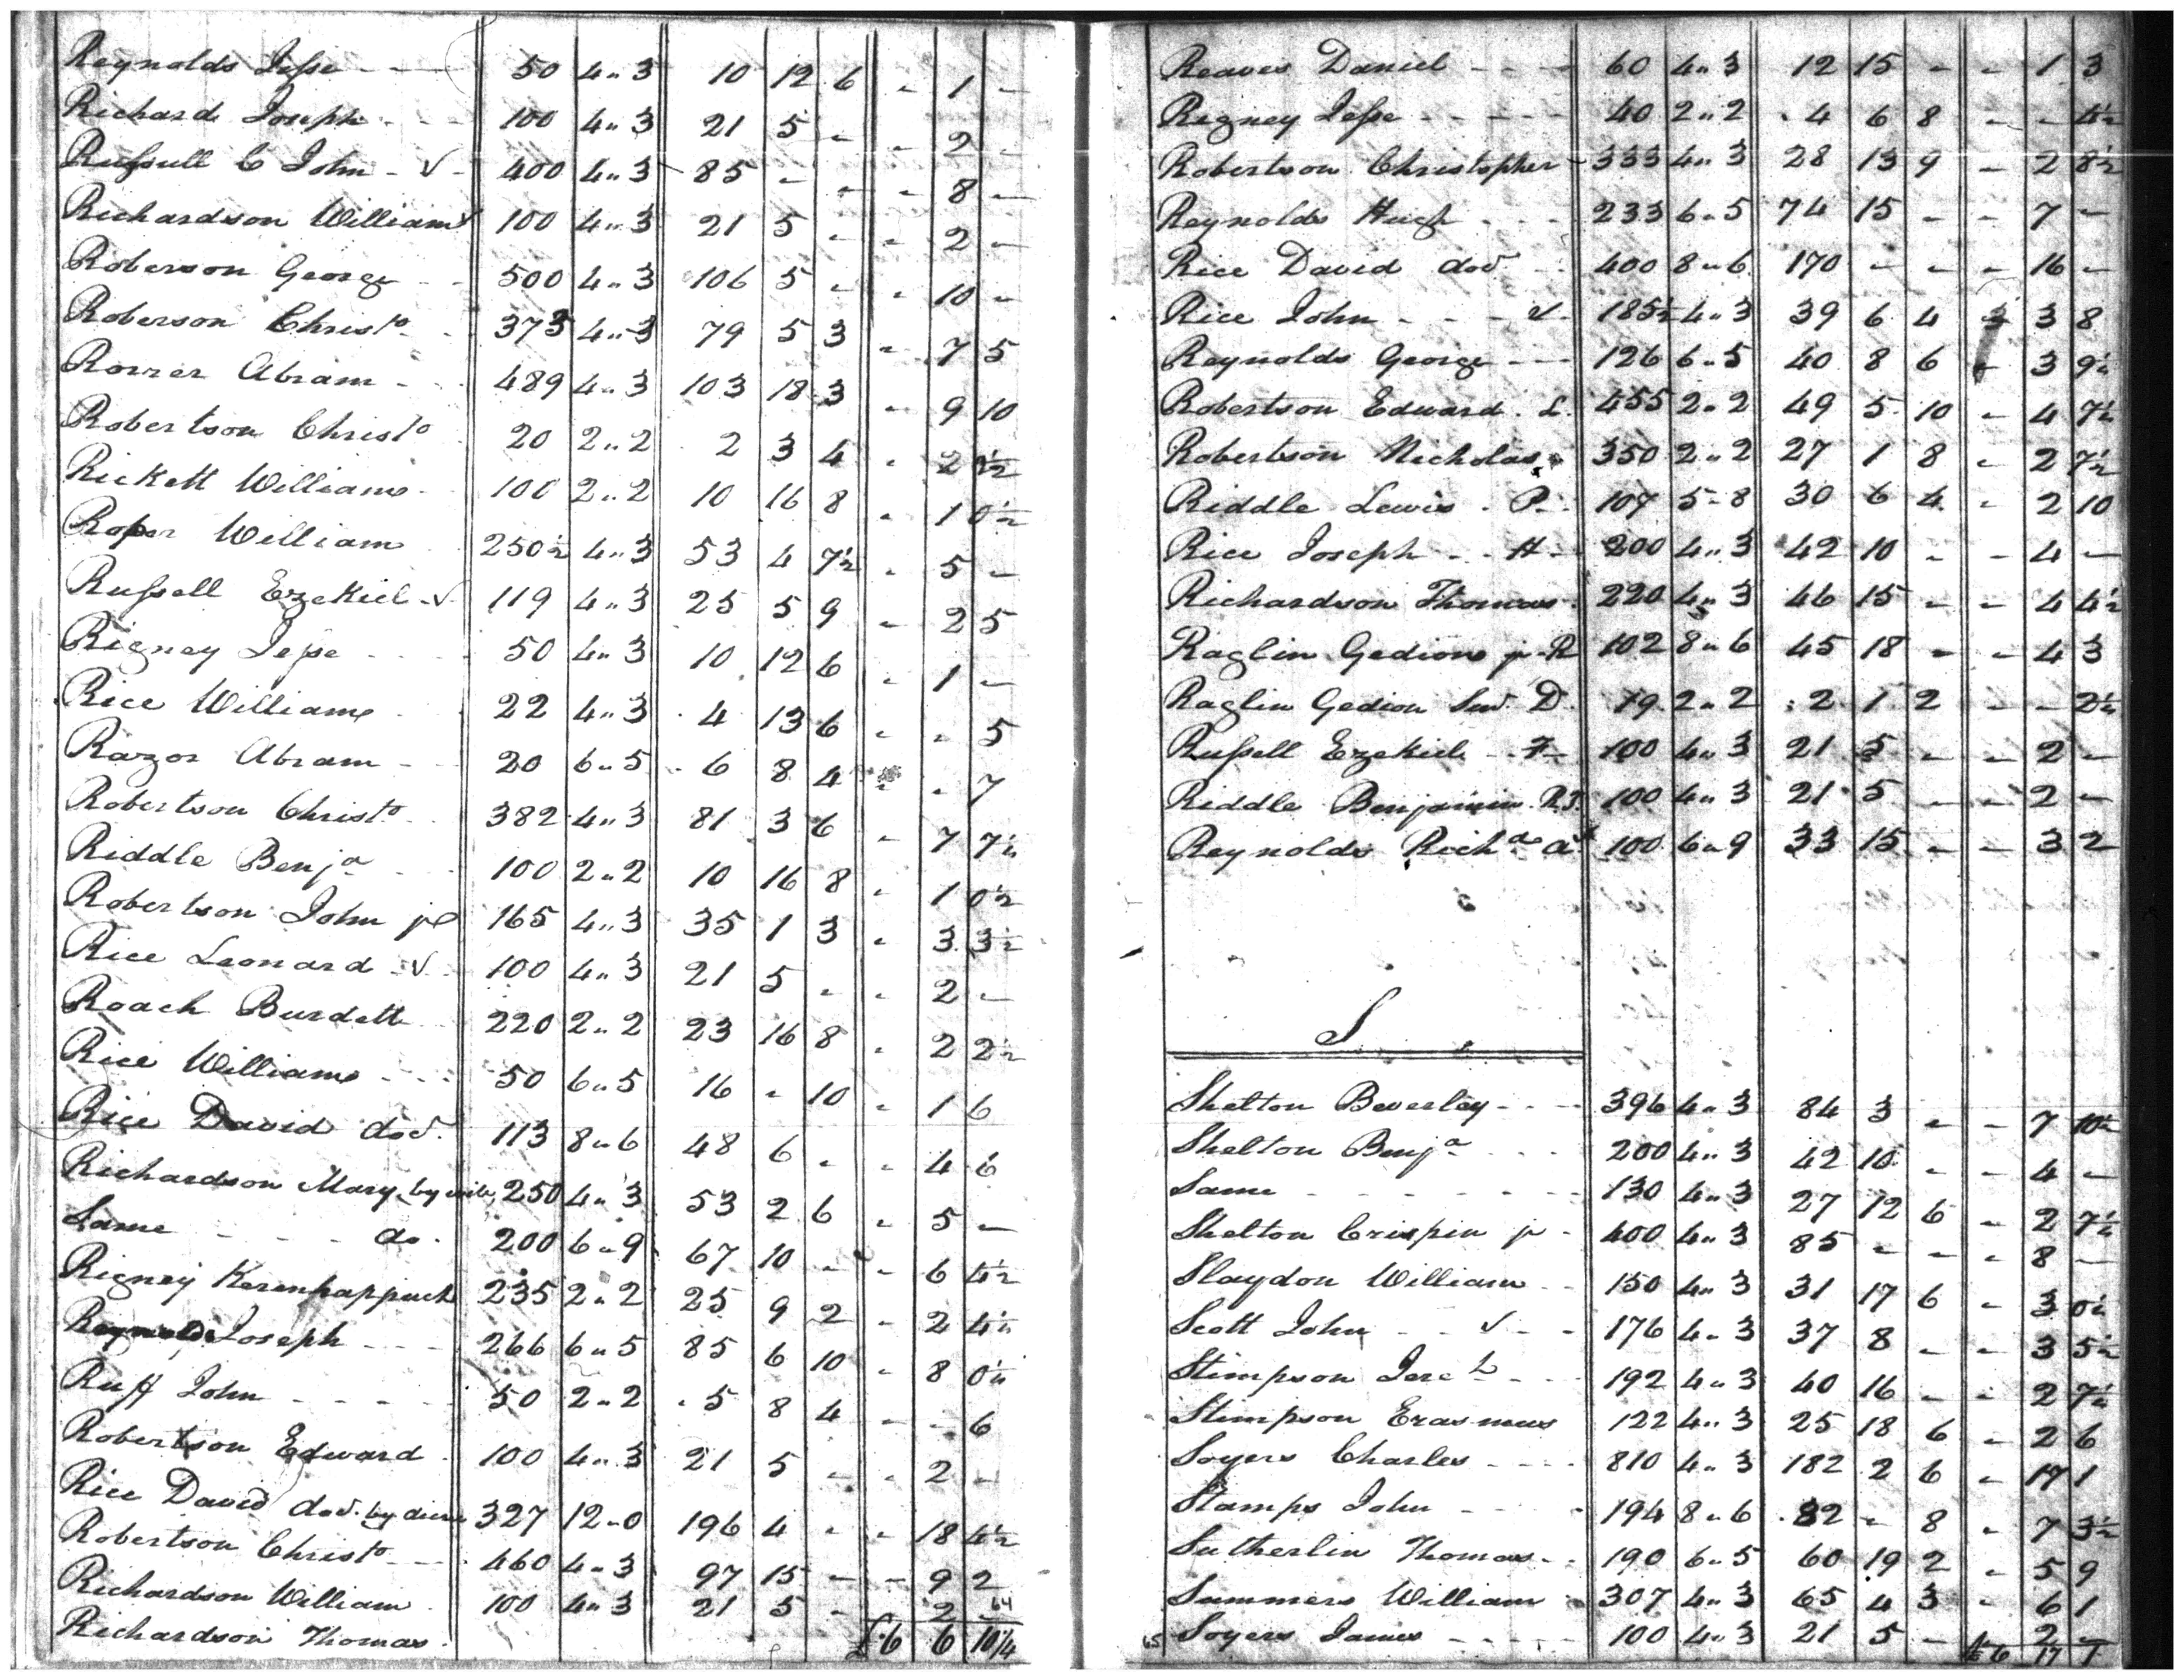 Reynolds Jesse - - - 50 4 " 3 10 12 6 - 1 -
Richard Joseph - - - 100 4 " 3 21 5 - - 2 -
Russull C John - ✓ - 400 4 " 3 85 - - - 8 -
Richardson William ✓ 100 4 " 3 21 5 - - 2 -
Roberson George - - 500 4 " 3 106 5 - - 10 -
Roberson Christo 373 4 " 3 79 5 3 - 7 5
Rorrer Abram - - 489 4 " 3 103 18 3 - 9 10
Robertson Christo 20 2 " 2 2 3 4 - 2 2½
Rickett William 100 2 " 2 10 16 8 - 1 0½
Roper William 250½ 4 " 3 53 4 7½ - 5 -
Russell Ezekiel - ✓ 119 4 " 3 25 5 9 - 2 5
Rigney Jesse - - - 50 4 " 3 10 12 6 - 1 -
Rice William 22 4 " 3 4 13 6 - - 5
Razor Abram - - 20 6 " 5 6 8 4 - - 7
Robertson Christo 382 4 " 3 81 3 6 - 7 7½
Riddle Benja 100 2 " 2 10 16 8 - 1 0½
Robertson John jr 165 4 " 3 35 1 3 - 3 3½
Rice Leonard - ✓ 100 4 " 3 21 5 - - 2 -
Roach Burdett 220 2 " 2 23 16 8 - 2 2½
Rice William - - - 50 6 " 5 16 - 10 - 1 6
Rice David decd. 113 8 " 6 48 6 - - 4 6
Richardson Mary by wife 250 4 " 3 53 2 6 - 5 -
Same - - - do. 200 6 " 9 67 10 - - 6 4½
Rigney Kerenhappuck 235 2 " 2 25 9 2 - 2 4½
Reynolds Joseph - - - 266 6 " 5 85 6 10 - 8 0½
Ruff John - - - - 50 2 " 2 5 8 4 - - 6
Robertson Edward 100 4 " 3 21 5 - - 2 -
Rice David decd. by 327 12 - 0 196 4 - - 18 4½
Robertson Christo - - 460 4 " 3 97 15 - - 9 2
Richardson William 100 4 " 3 21 5 - 2 64
Richardson Thomas. £ 6 6 10¼
Reaves Daniel - - - 60 4 " 3 12 15 - - 1 3
Rigney Jesse - - - - 40 2 " 2 4 6 8 - - 4½
Robertson Christopher - 333 4 " 3 28 13 9 - 2 8½
Reynolds Hugh - - - 233 6 " 5 74 15 - - 7 -
Rice David decd. - 400 8 " 6 170 - - - 16 -
Rice John - - - ✓ 185½ 4 " 3 39 6 4 3 8
Reynolds George - - - 126 6 " 5 40 8 6 - 3 9½
Robertson Edward. L. 455 2 " 2 49 5 10 - 4 7½
Robertson Nicholas 350 2 " 2 27 1 8 - 2 7½
Riddle Lewis . P. 107 5 - 8 30 6 4 - 2 10
Rice Joseph - - H - 200 4 " 3 42 10 - - 4 -
Richardson Thomas 220 4 " 3 46 15 - - 4 4½
Raglin Gedion jr R 102 8 " 6 45 18 - - 4 3
Raglin Gedion Senr. D. 19 2 " 2 2 1 2 - - 2½
Russell Ezekiel - F - 100 4 " 3 21 5 - - 2 -
Riddle Benjamin R.J. 100 4 " 3 21 5 - - 2 -
Reynolds Richd. 100 6 " 9 33 15 - - 3 2
S
Shelton Beverley - - - 396 4 " 3 84 3 - - 7 10½
Shelton Benja - - - 200 4 " 3 42 10 - - 4 -
Same - - - - - - 130 4 " 3 27 12 6 - 2 7½
Shelton Crispin jr - 400 4 " 3 85 - - - 8 -
Slaydon William - - 150 4 " 3 31 17 6 - 3 0½
Scott John - - ✓ - - 176 4 " 3 37 8 - - 3 5½
Stimpson Jereh - - - 192 4 " 3 40 16 - - 2 7½
Stimpson Erasmus 122 4 " 3 25 18 6 - 2 6
Soyers Charles - - - - 810 4 " 3 182 2 6 - 17 1
Stamps John - - - 194 8 " 6 82 - 8 - 7 3½
Sutherlin Thomas - - 190 6 " 5 60 19 2 - 5 9
Summers William 307 4 " 3 65 4 3 - 6 1
65 Soyers James - - - - 100 4 " 3 21 5 - 2 -
£ 6 17 7